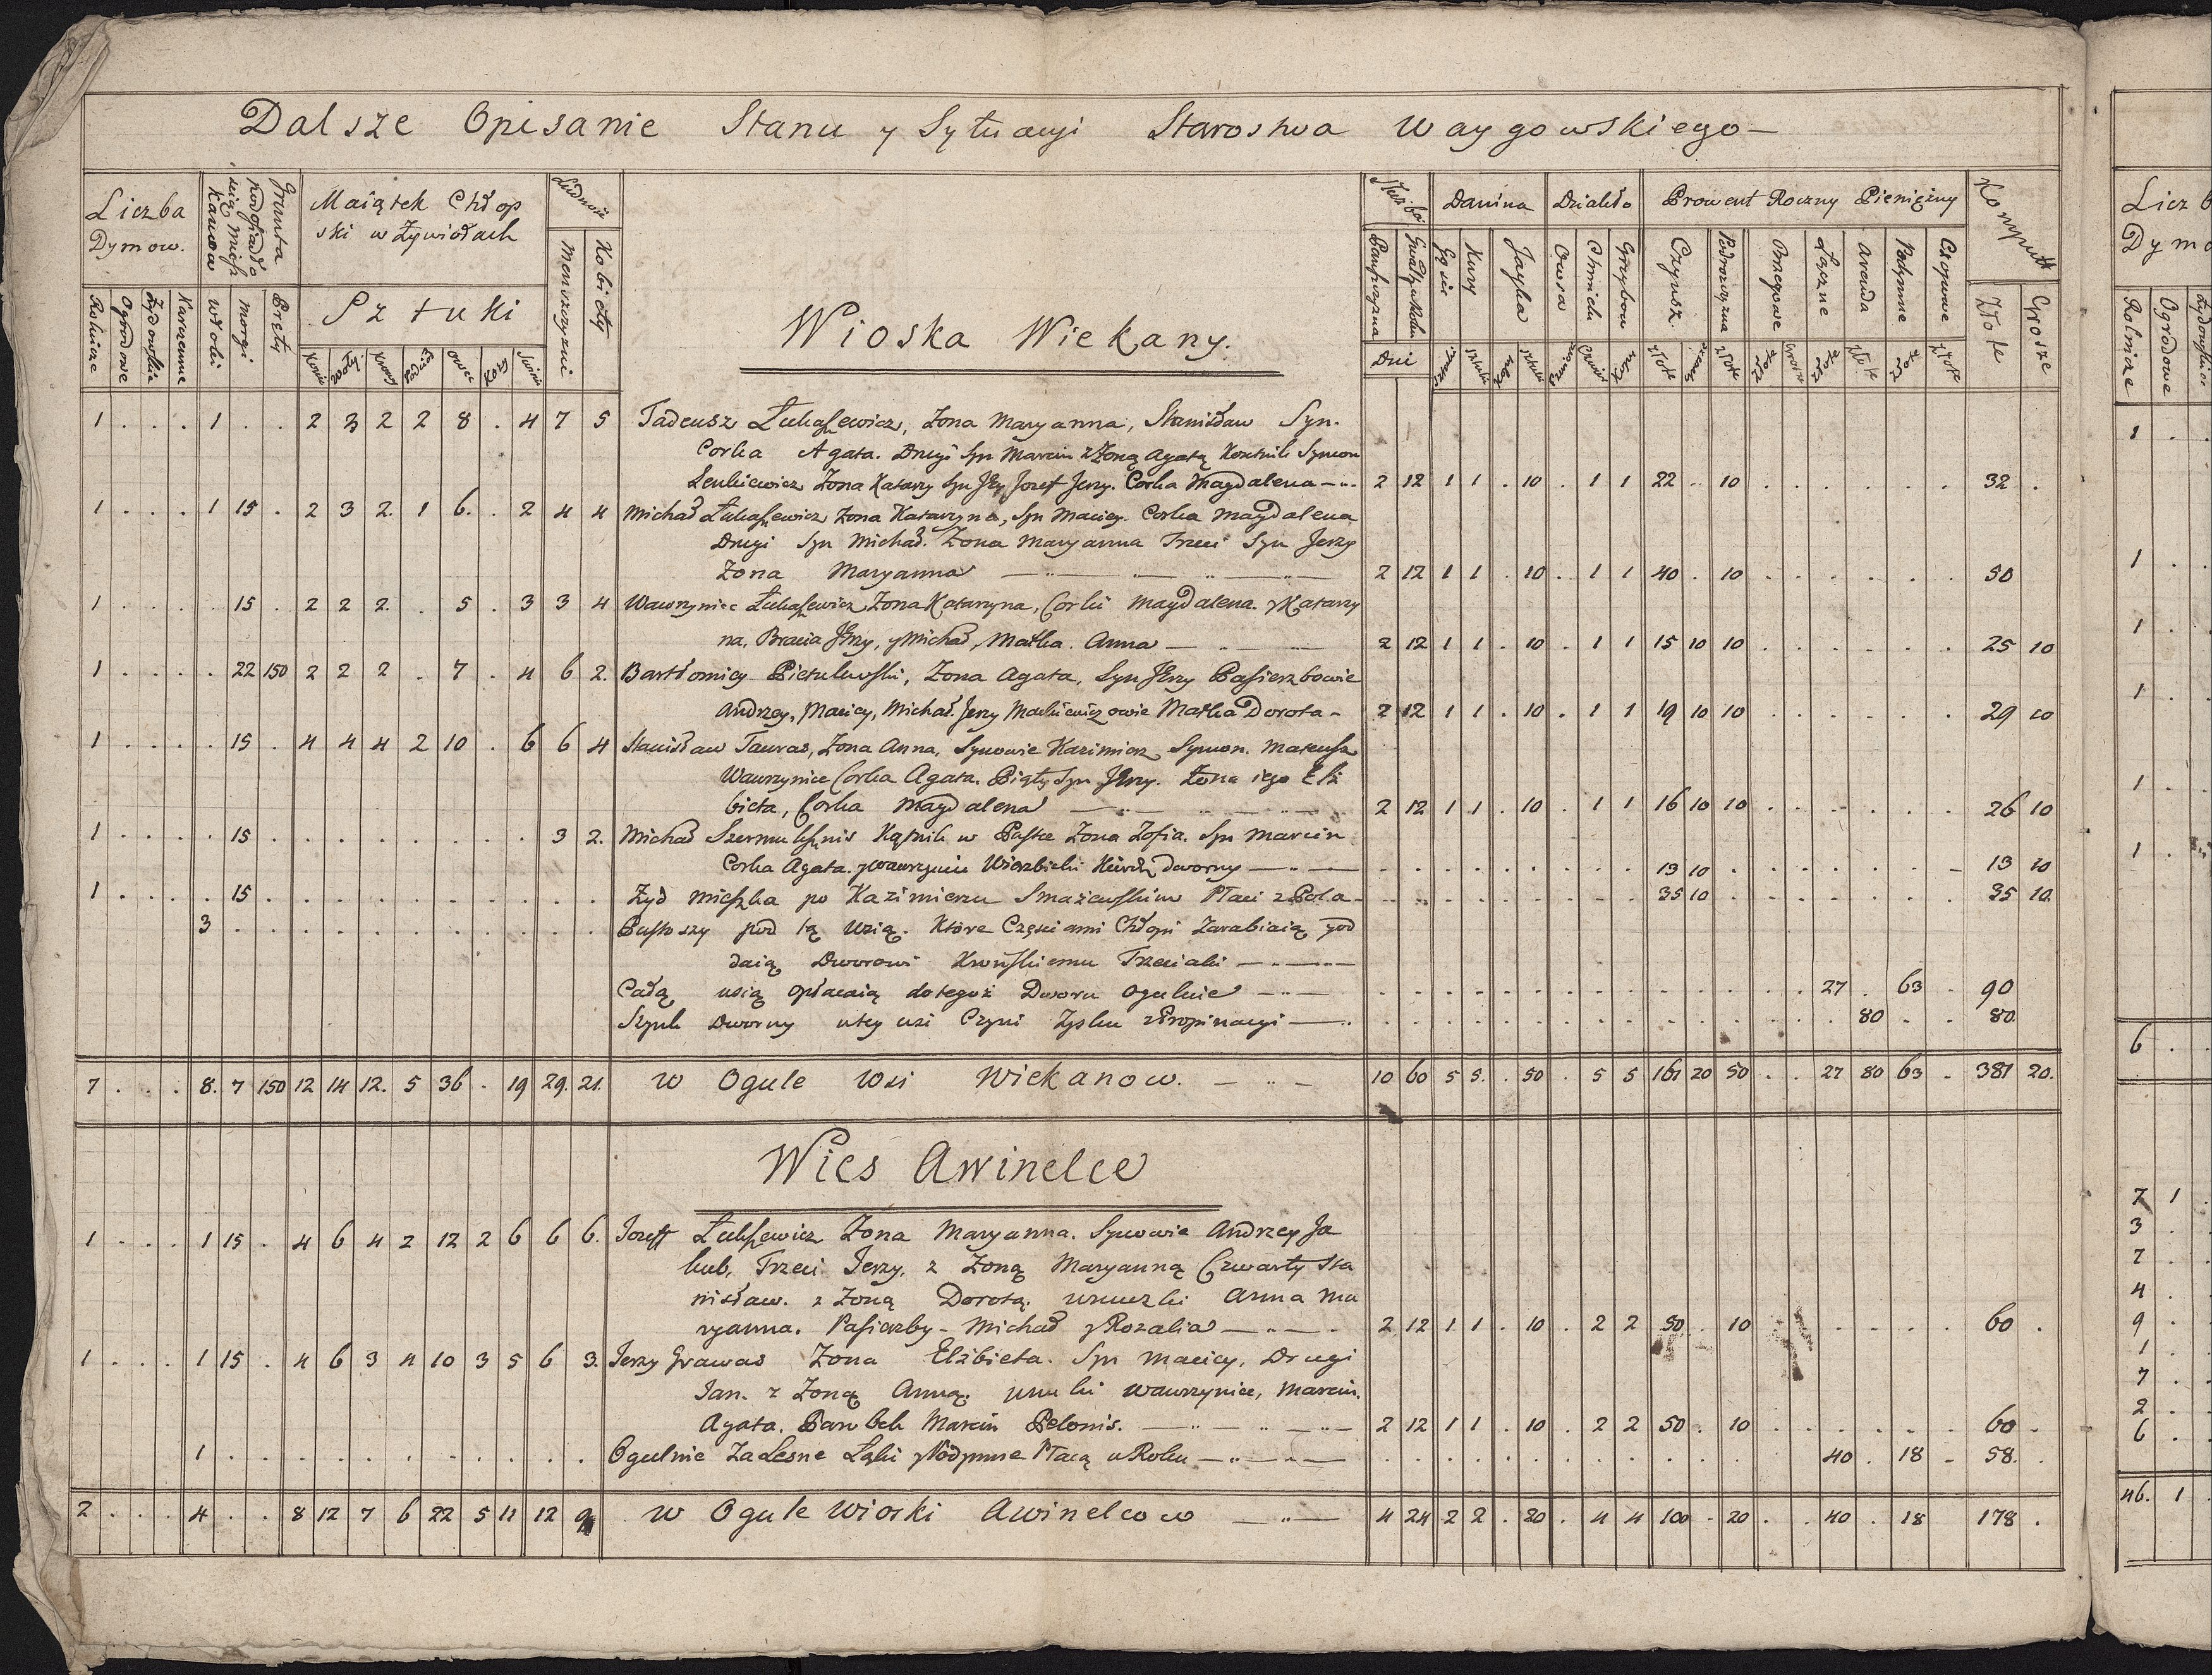 Dalsze Opisanie Stanu y Sytuacyi Starostwa Waygowskiego —
Liczba Dymow.
Grunta
Maiątek Chłop
ski w Żywiołach
Sztuki
Ludność
Menszczyzni Kobiety
Danina Dziakło Prowent Roczny Pieniężny Komput
Rolnicze Ogrodowe Żydowskie Karczemne Włoki Morgi Pręty
Konie Woły Krowy Owiec Kozy Świnie
Pańszczyzna Gęsie Kury Jayka Owsa Chmielu Grzybow Czynsz Podrożczyzna Brzegowe Łączne Arenda Podymne Czopowe Złote Grosze
Dni
Wioska Wiekany.
1 . . . 1 . . 2 3 2 2 8 . 4 7 5 Tadeusz Łukaszewicz, Żona Maryanna, Stanisław Syn.
Corka Agata. Drugi Syn Marcin z Żoną Agatą Kontnik Symon
Lenkiewicz Żona Katarzy Syn Jerzy Jozeff Jerzy. Corka Magdalena — 2 12 1 1 . 10 . 1 1 22 . 10 . . . . . . . 32 .
1 . . . 1 15 . 2 3 2. 1 6. . 2 4 4 Michał Łukaszewicz Żona Katarzyna, Syn Maciey. Corka Magdalena
Drugi Syn Michał. Żona Maryanna Trzeci Syn Jerzy
Żona Maryanna — 2 12 1 1 . 10 . 1 1 40 . 10 . . . . . . . 50
1 . . . . 15 . 2 2 2. . 5 . 3 3 4 Wawrzyniec Łukaszewicz, Żona Katarzyna, Corki Magdalena. y Katarzy
na, Bracia Jerzy, y Michał, Matka. Anna — 2 12 1 1 . 10 . 1 1 15 10 10 . . . . . . . 25 10
1 . . . . 22 150 2 2 2 . 7 . 4 6 2. Bartłomiey Pietulewski, Żona Agata, Syn Jerzy Pasierzbowie
Andrzey, Maciey, Michał. Jerzy Mackiewiczowie Matka Dorota - 2 12 1 1 . 10 . 1 1 19 10 10 . . . . . . . 29 10
1 . . . . 15 . 4 4 4 2 10 . 6 6 4 Stanisław Tauras, Żona Anna, Synowie Kazimierz Symon. Mateusz
Wawrzyniec Corka Agata. Piąty Syn Jerzy. Żona iego Elż
bieta, Corka Magdalena — 2 12 1 1 . 10 . 1 1 16 10 10 . . . . . . . 26 10
1 . . . . 15 . . . . . . . . 3 2. Michał Kątnik w Pustce Żona Zofia. Syn Marcin
Corka Agata. y Wawrzyniec Wierzbicki dworny — 13 10 . . . . . . 13 10
1 . . . . 15 . . . . . . . . . . Żyd Mieszka po Kazimierzu Smażewskim Płaci z Pola - 35 10 . . . . . . 35 10
3 . . . . . . . . . . . Pustoszy pod tą Wsią. Które Częściami Chłopi Zarabiaią y od
daią Dworowi Trzeciaki —
Całą wsią opłacaią do tegoż Dworu ogulnie — 27 . 63 . 90
Szynk Dworny w tey wsi Czyni Zysku z Propinacyi — 80 . . 80.
7 . . . 8. 7 150 12 14 12. 5 36 . 19 29. 21. w Ogule Wsi Wiekanow. — 10 60 5 5. . 50 . 5 5 161 20 50 . . 27 80 63 . 381 20.
Wies Awinelce
1 . . . 1 15 . 4 6 4 2 12 2 6 6 6. Jozeff Łukszewicz Żona Maryanna. Synowie Andrzey Ja
kub, Trzeci Jerzy. z Żoną Maryanną Czwarty Sta
nisław. z Żoną Dorotą. Wnuczki Anna Ma
ryanna. Pasierzby - Michał y Rozalia — 2 12 1 1 . 10 . 2 2 50 . 10 . . . . . . 60 .
1 . . . 1 15 . 4 6 3 4 10 3 5 6 3. Jerzy Grawas Żona Elżbieta. Syn Maciey, Drugi
Jan. z Żoną Anną. Wnuki Wawrzyniec, Marcin.
Agata. Parobek Marcin Pelonis. — 2 12 1 1 . 10 . 2 2 50 . 10 . . . . . . 60 .
1 . . . . . . . . . . . Ogulnie Za Lesne Łąki y Podymne Płacą w Roku — 40 . 18 - 58. .
2 . . . 4 . . 8 12 7 6 22 5 11 12 9 w Ogule Wioski Awinelcow — 4 24 2 2 . 20 . 4 4 100 . 20 . . 40 . 18 178 .
Licz
Dym
Rolnicze
Ogrodowe
Żydowskie
1
1
1
1
1
1
6
7 1
3
7
4
9
1
7
2
6
46. 1